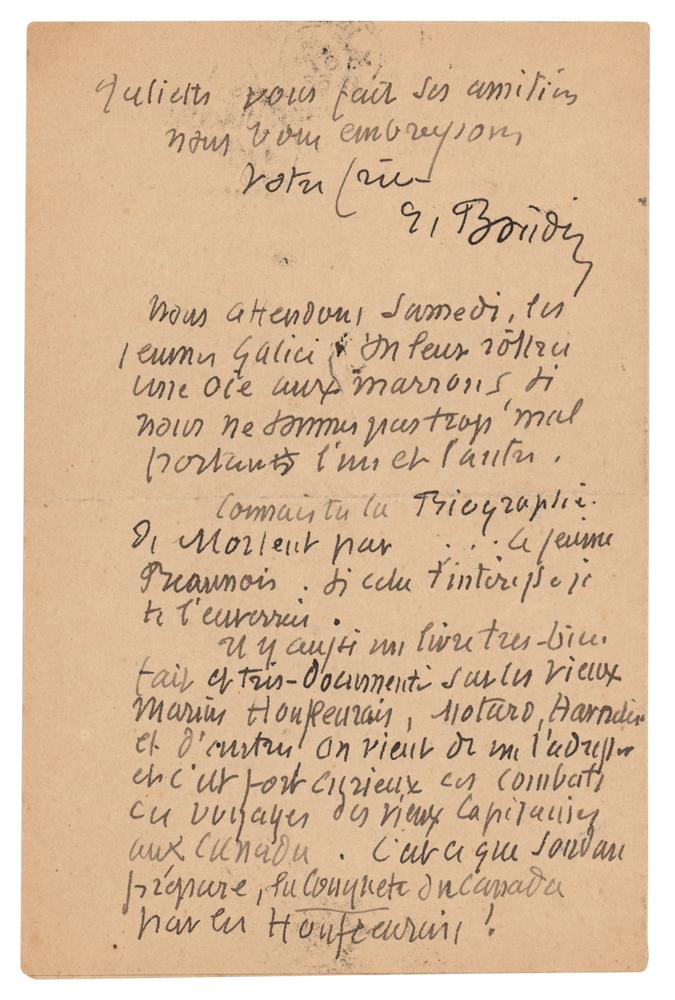 Juliette vous fait ses amitiés
nous vous embrassons
Votre frère
E, Boudin
Nous attendons samedi, les
jeunes Galici On leur rôtira
une oie aux marrons, si
nous ne sommes pas trop mal
portants l'un et l'autre.
Connais tu la Biographie.
de Morlent par ... le jeune
Beaunois. Si cela t'interesse je
te l'enverrai.
Il y aussi un livre tres-bien
fait et très-documenté sur les vieux
Marins Honfleurais, Motard,
et d'autres On vient de me l'adresser
et c'est fort curieux ces combats
ces voyages des vieux Capitaines
aux Canada. C'est ce que
prépare, la Conquete du Canada
par les Honfleurais!